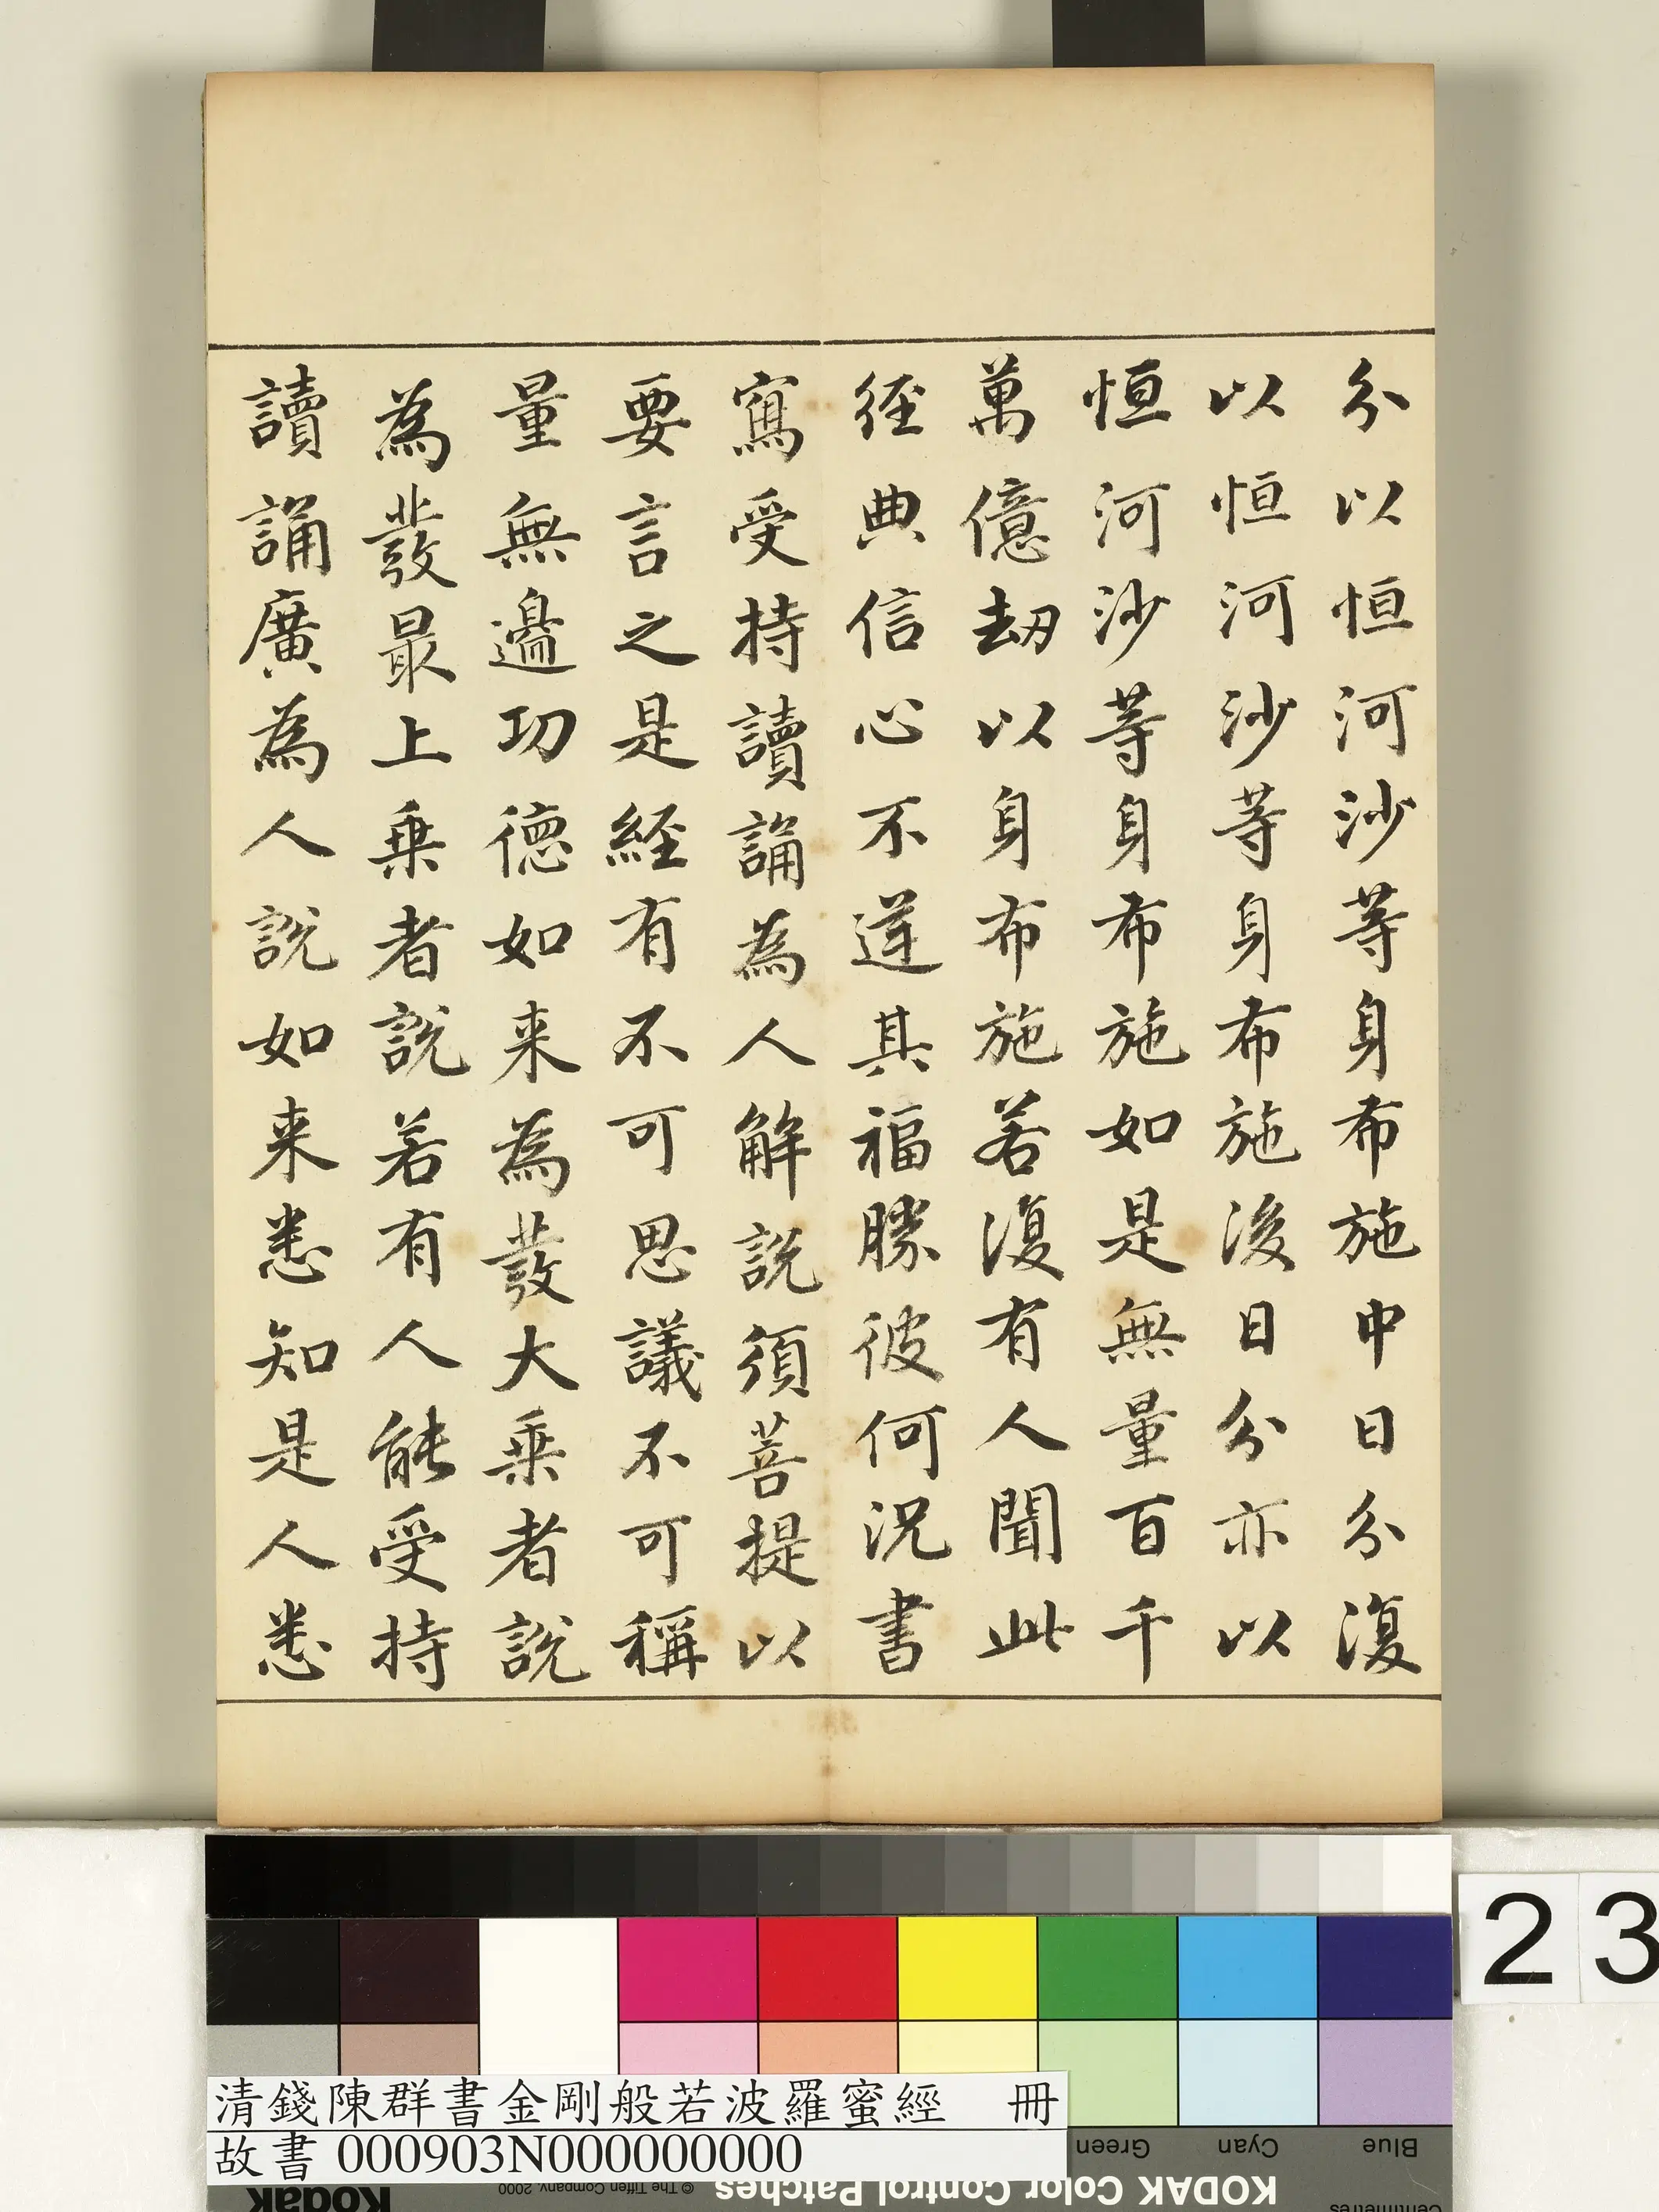 分以恒河沙等身布施中日分復
以恒河沙等身布施後日分亦以
恒河沙等身布施如是無量百千
萬億劫以身布施若復有人聞此
經典信心不逆其福勝彼何況書
寫受持讀誦為人解說須菩提以
要言之是経有不可思議不可稱
量無邊功德如来為發大乗者說
為發最上乗者說若有人能受持
讀誦廣為人說如来悉知是人悉
23
清錢陳群書金剛般若波羅蜜經 冊
故書 000903N000000000
Green
Cyan
Blue
Kodak
© The Tiffen Company, 2000
KODAK Color Control Patches
Centimetres